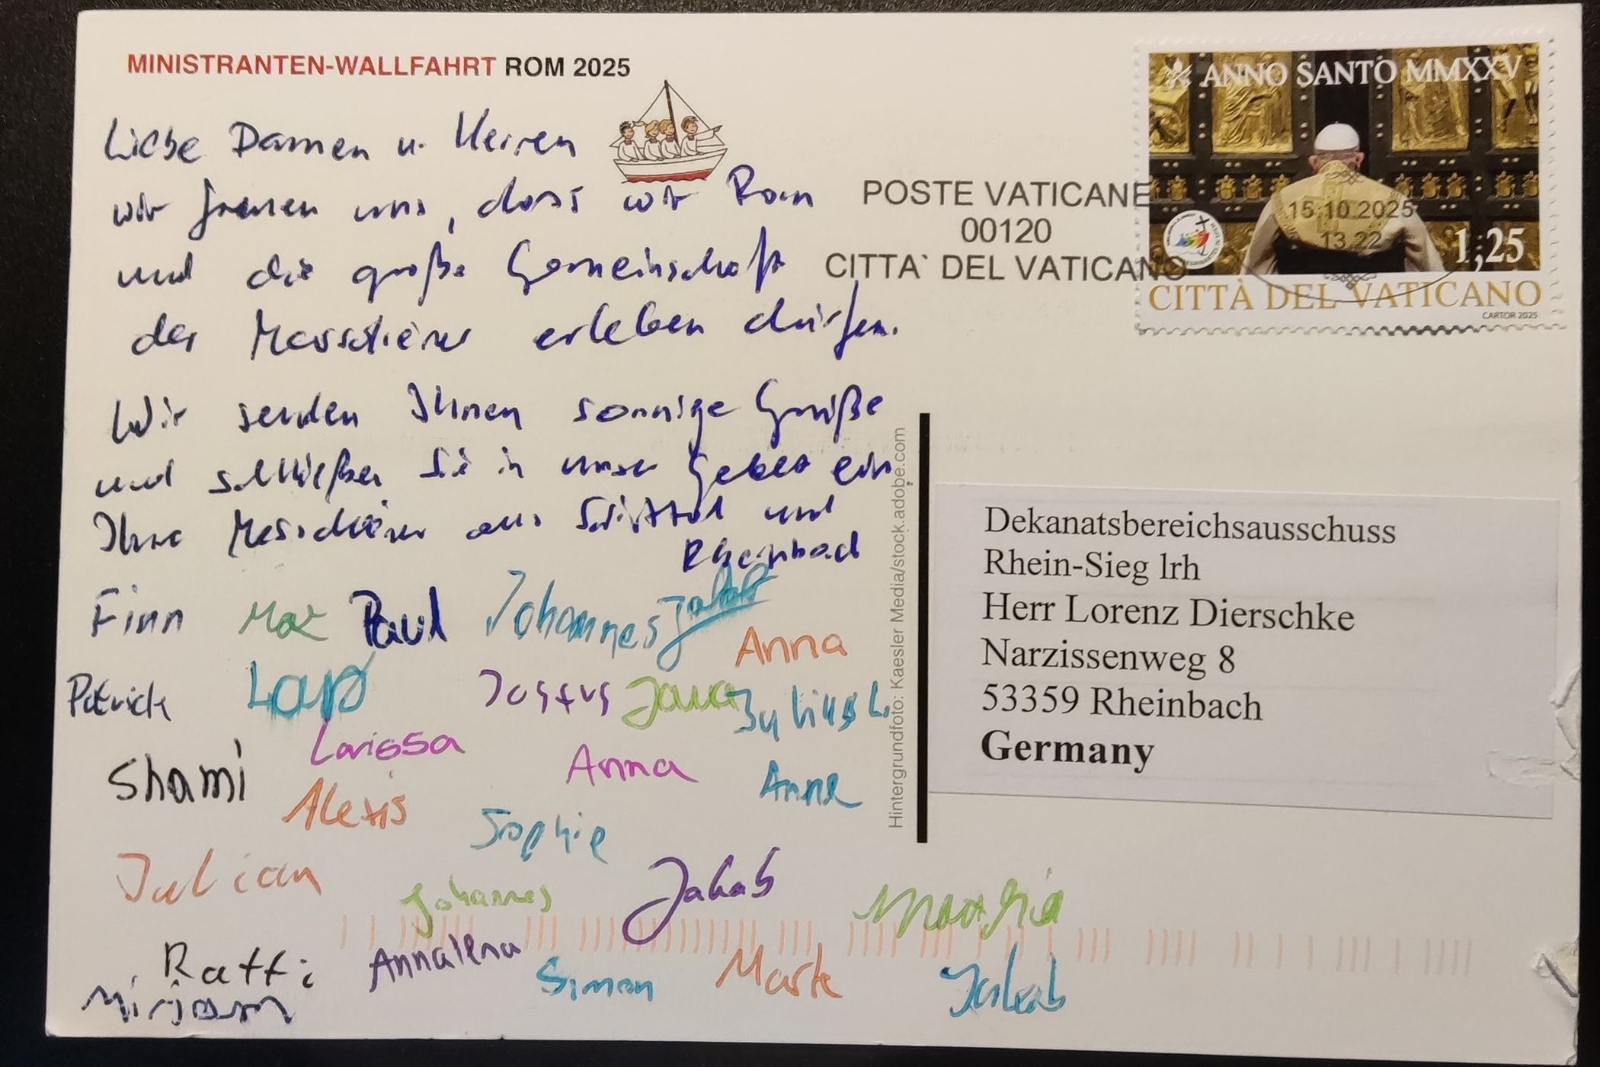 MINISTRANTEN-WALLFAHRT ROM 2025
Liebe Damen u. Herren
wir freuen uns, dass wir Rom
und die große Gemeinschaft
der Messdiener erleben dürfen.
Wir senden Ihnen sonnige Grüße
und schließen Sie in unser Gebet ein
Ihre Messdiener aus und
Rheinbach
Finn Max Paul Johannes Jakob
Anna
Patrick Justus Jana Julius L.
Larissa
Shami Anna Anne
Alexis
Sophie
Julian
Johannes Jakob
Raffi Annalena Simon Marte Jakob
Mirjam
ANNO SANTO MMXXV
POSTE VATICANE
00120
CITTA` DEL VATICANO
15.10.2025
13.22
1,25
CITTÀ DEL VATICANO
CARTOR 2025
Hintergrundfoto: Kaesler Media/stock.adobe.com
Dekanatsbereichsausschuss
Rhein-Sieg lrh
Herr Lorenz Dierschke
Narzissenweg 8
53359 Rheinbach
Germany